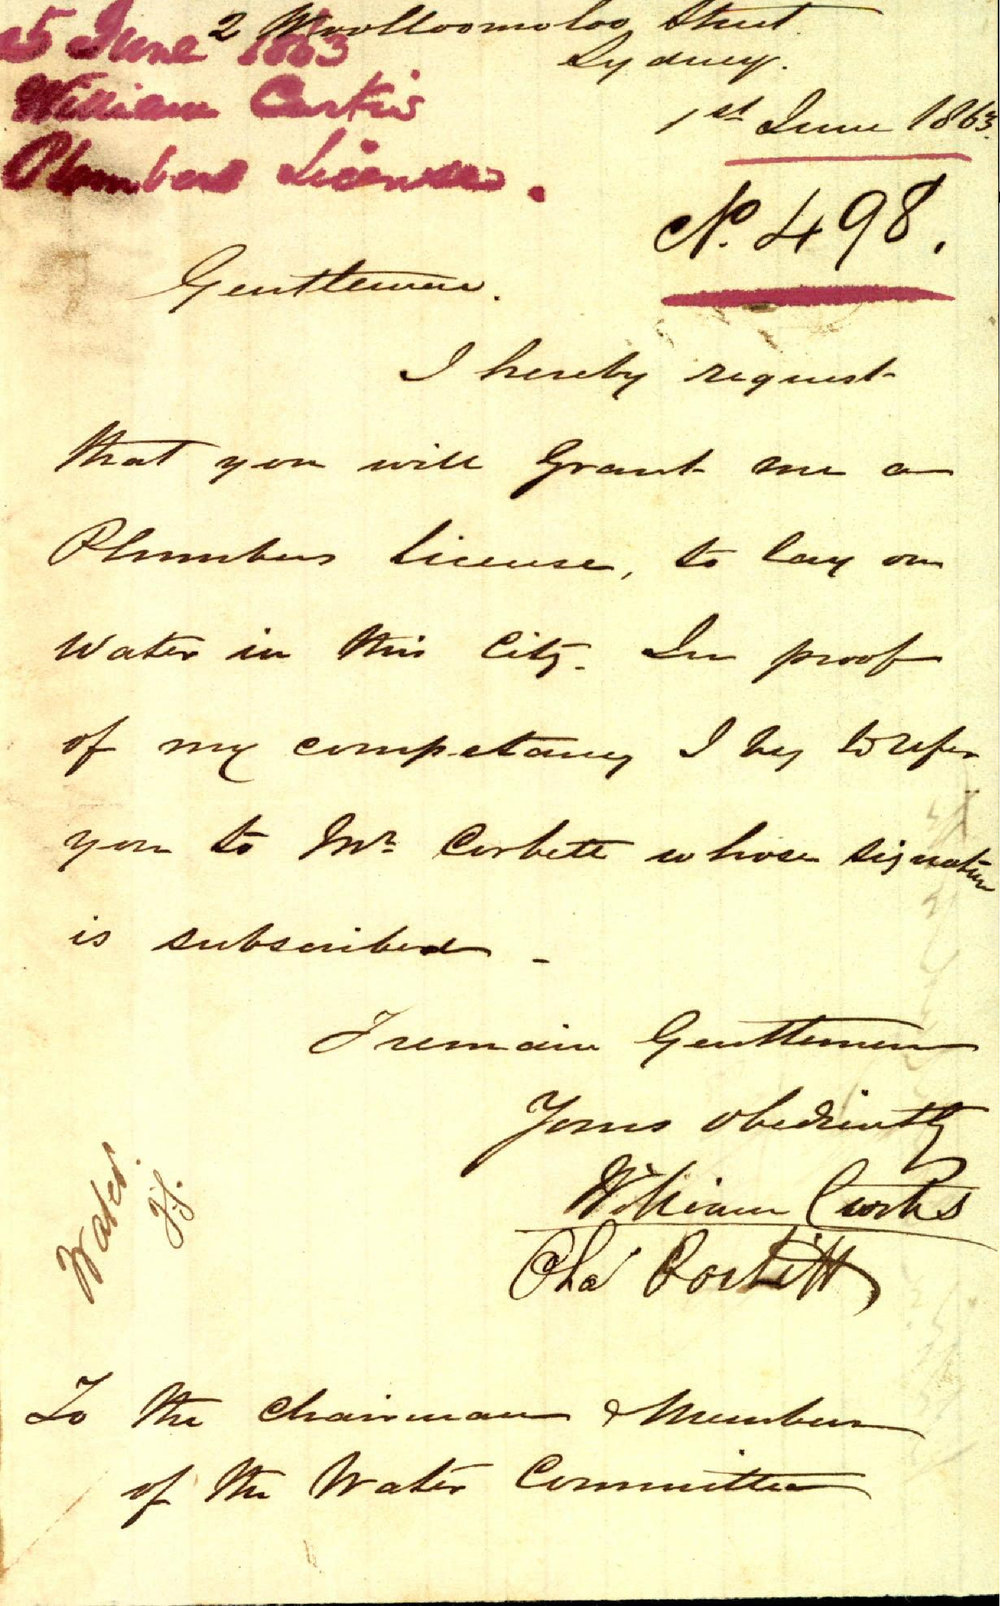 2 Woolloomoloo Street.
Sydney.
1st June 1863.
5 June 1863
William Curtis
Plumbers License.
No. 498.
Gentlemen.
I hereby request
that you will Grant me a
Plumbers License, to lay on
Water in this City. In proof
of my competancy I beg to refer
you to Mr. Corbett whose signature
is subscribed -
I remain Gentlemen
Yours obediently
William Curtis
Chas Corbitt
Water.
To the Chairman & Members
of the Water Committee